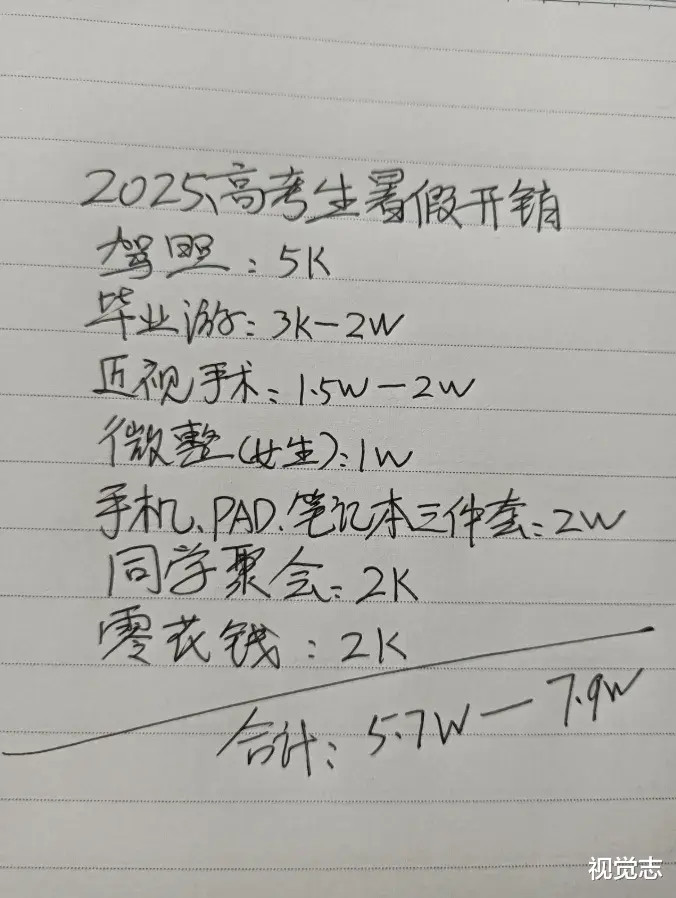 2025高考生暑假开销
驾照：5K
毕业游：3K-2W
近视手术：1.5W-2W
微整(女生)：1W
手机、PAD、笔记本三件套：2W
同学聚会：2K
零花钱：2K
合计：5.7W-7.9W
视觉志